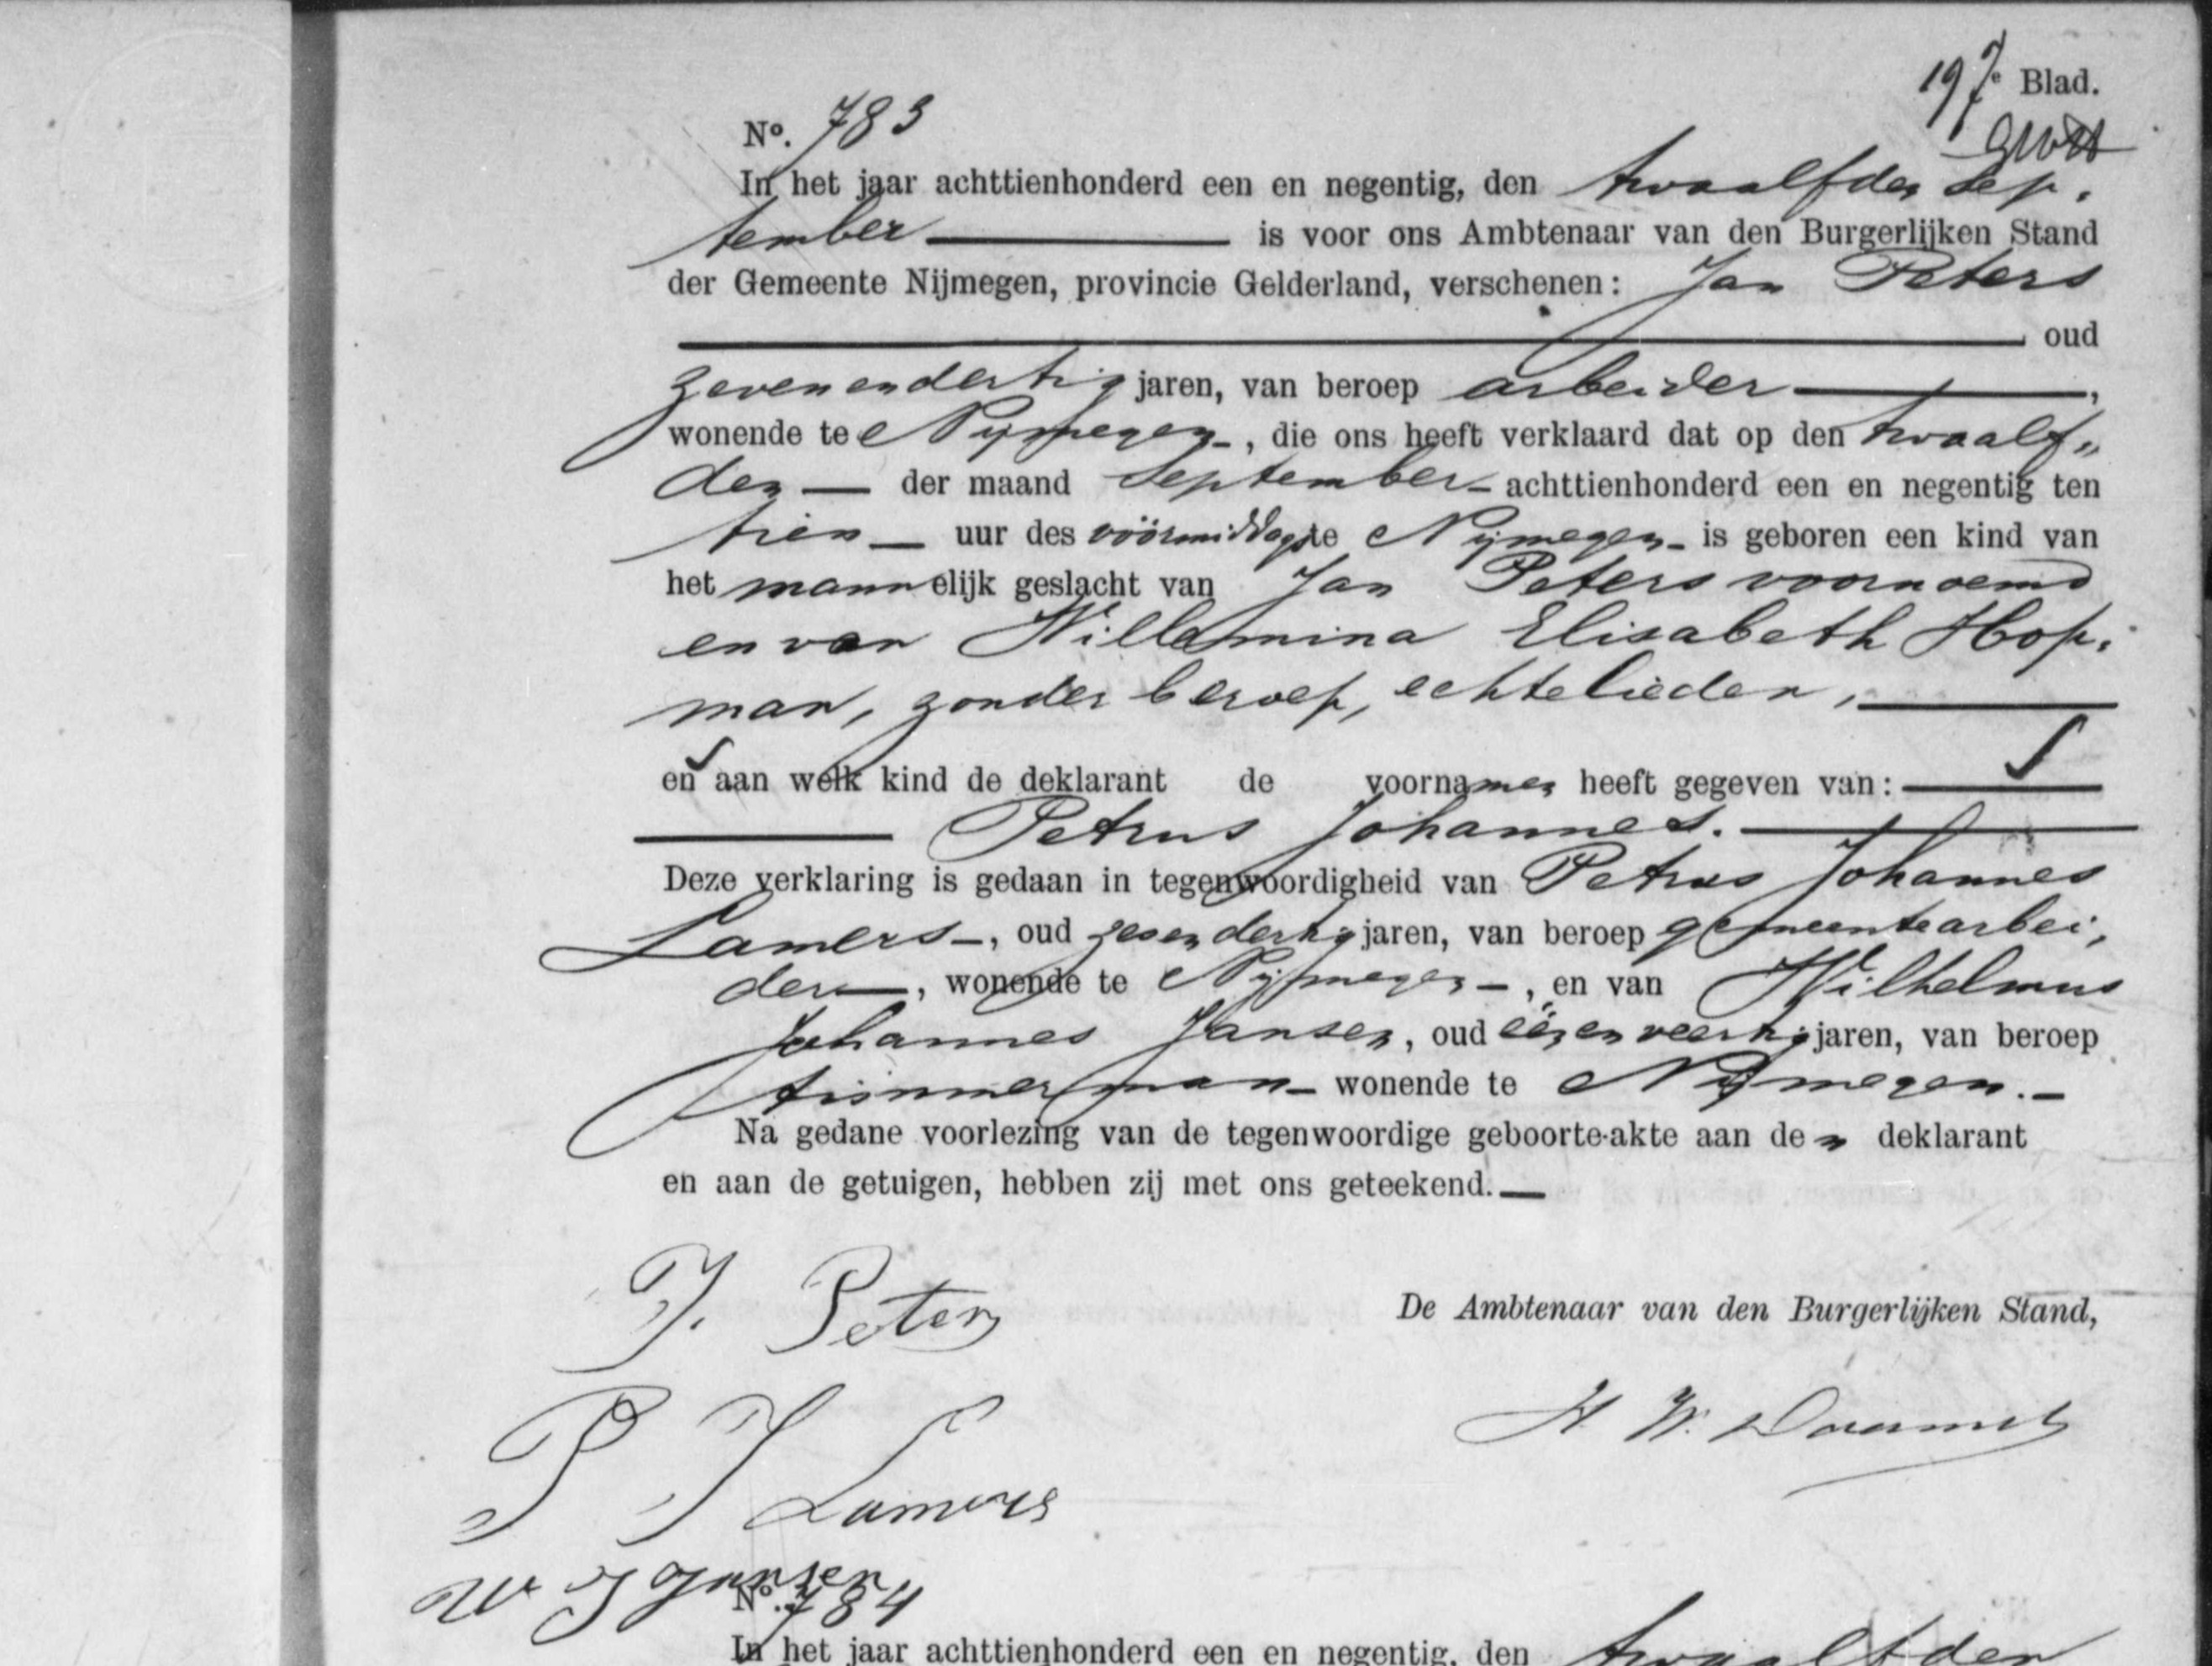 197e Blad.
No. 783
In het jaar achttienhonderd een en negentig, den twaalfden Sep,
tember is voor ons Ambtenaar van den Burgerlijken Stand
der Gemeente Nijmegen, provincie Gelderland, verschenen: Jan Peters
oud
zevenendertig jaren, van beroep arbeider,
wonende te Nijmegen, die ons heeft verklaard dat op den twaalf„
den der maand September achttienhonderd een en negentig ten
tien uur des vóórmiddags te Nijmegen is geboren een kind van
het mannelijk geslacht van Jan Peters voornoemd
en van Willemina Elisabeth Hop,
man, zonder beroep, echtelieden,
en aan welk kind de deklarant de voornamen heeft gegeven van:
Petrus Johannes.
Deze verklaring is gedaan in tegenwoordigheid van Petrus Johannes
Lamers, oud zesendertig jaren, van beroep gemeentearbei,
der, wonende te Nijmegen, en van Wilhelmus
Johannes Jansen, oud eenenveertig jaren, van beroep
timmerman wonende te Nijmegen.
Na gedane voorlezing van de tegenwoordige geboorte-akte aan den deklarant
en aan de getuigen, hebben zij met ons geteekend.
J. Peters
De Ambtenaar van den Burgerlijken Stand,
P J Lamers
W J Jansen
No. 784
In het jaar achttienhonderd een en negentig, den twaalfden